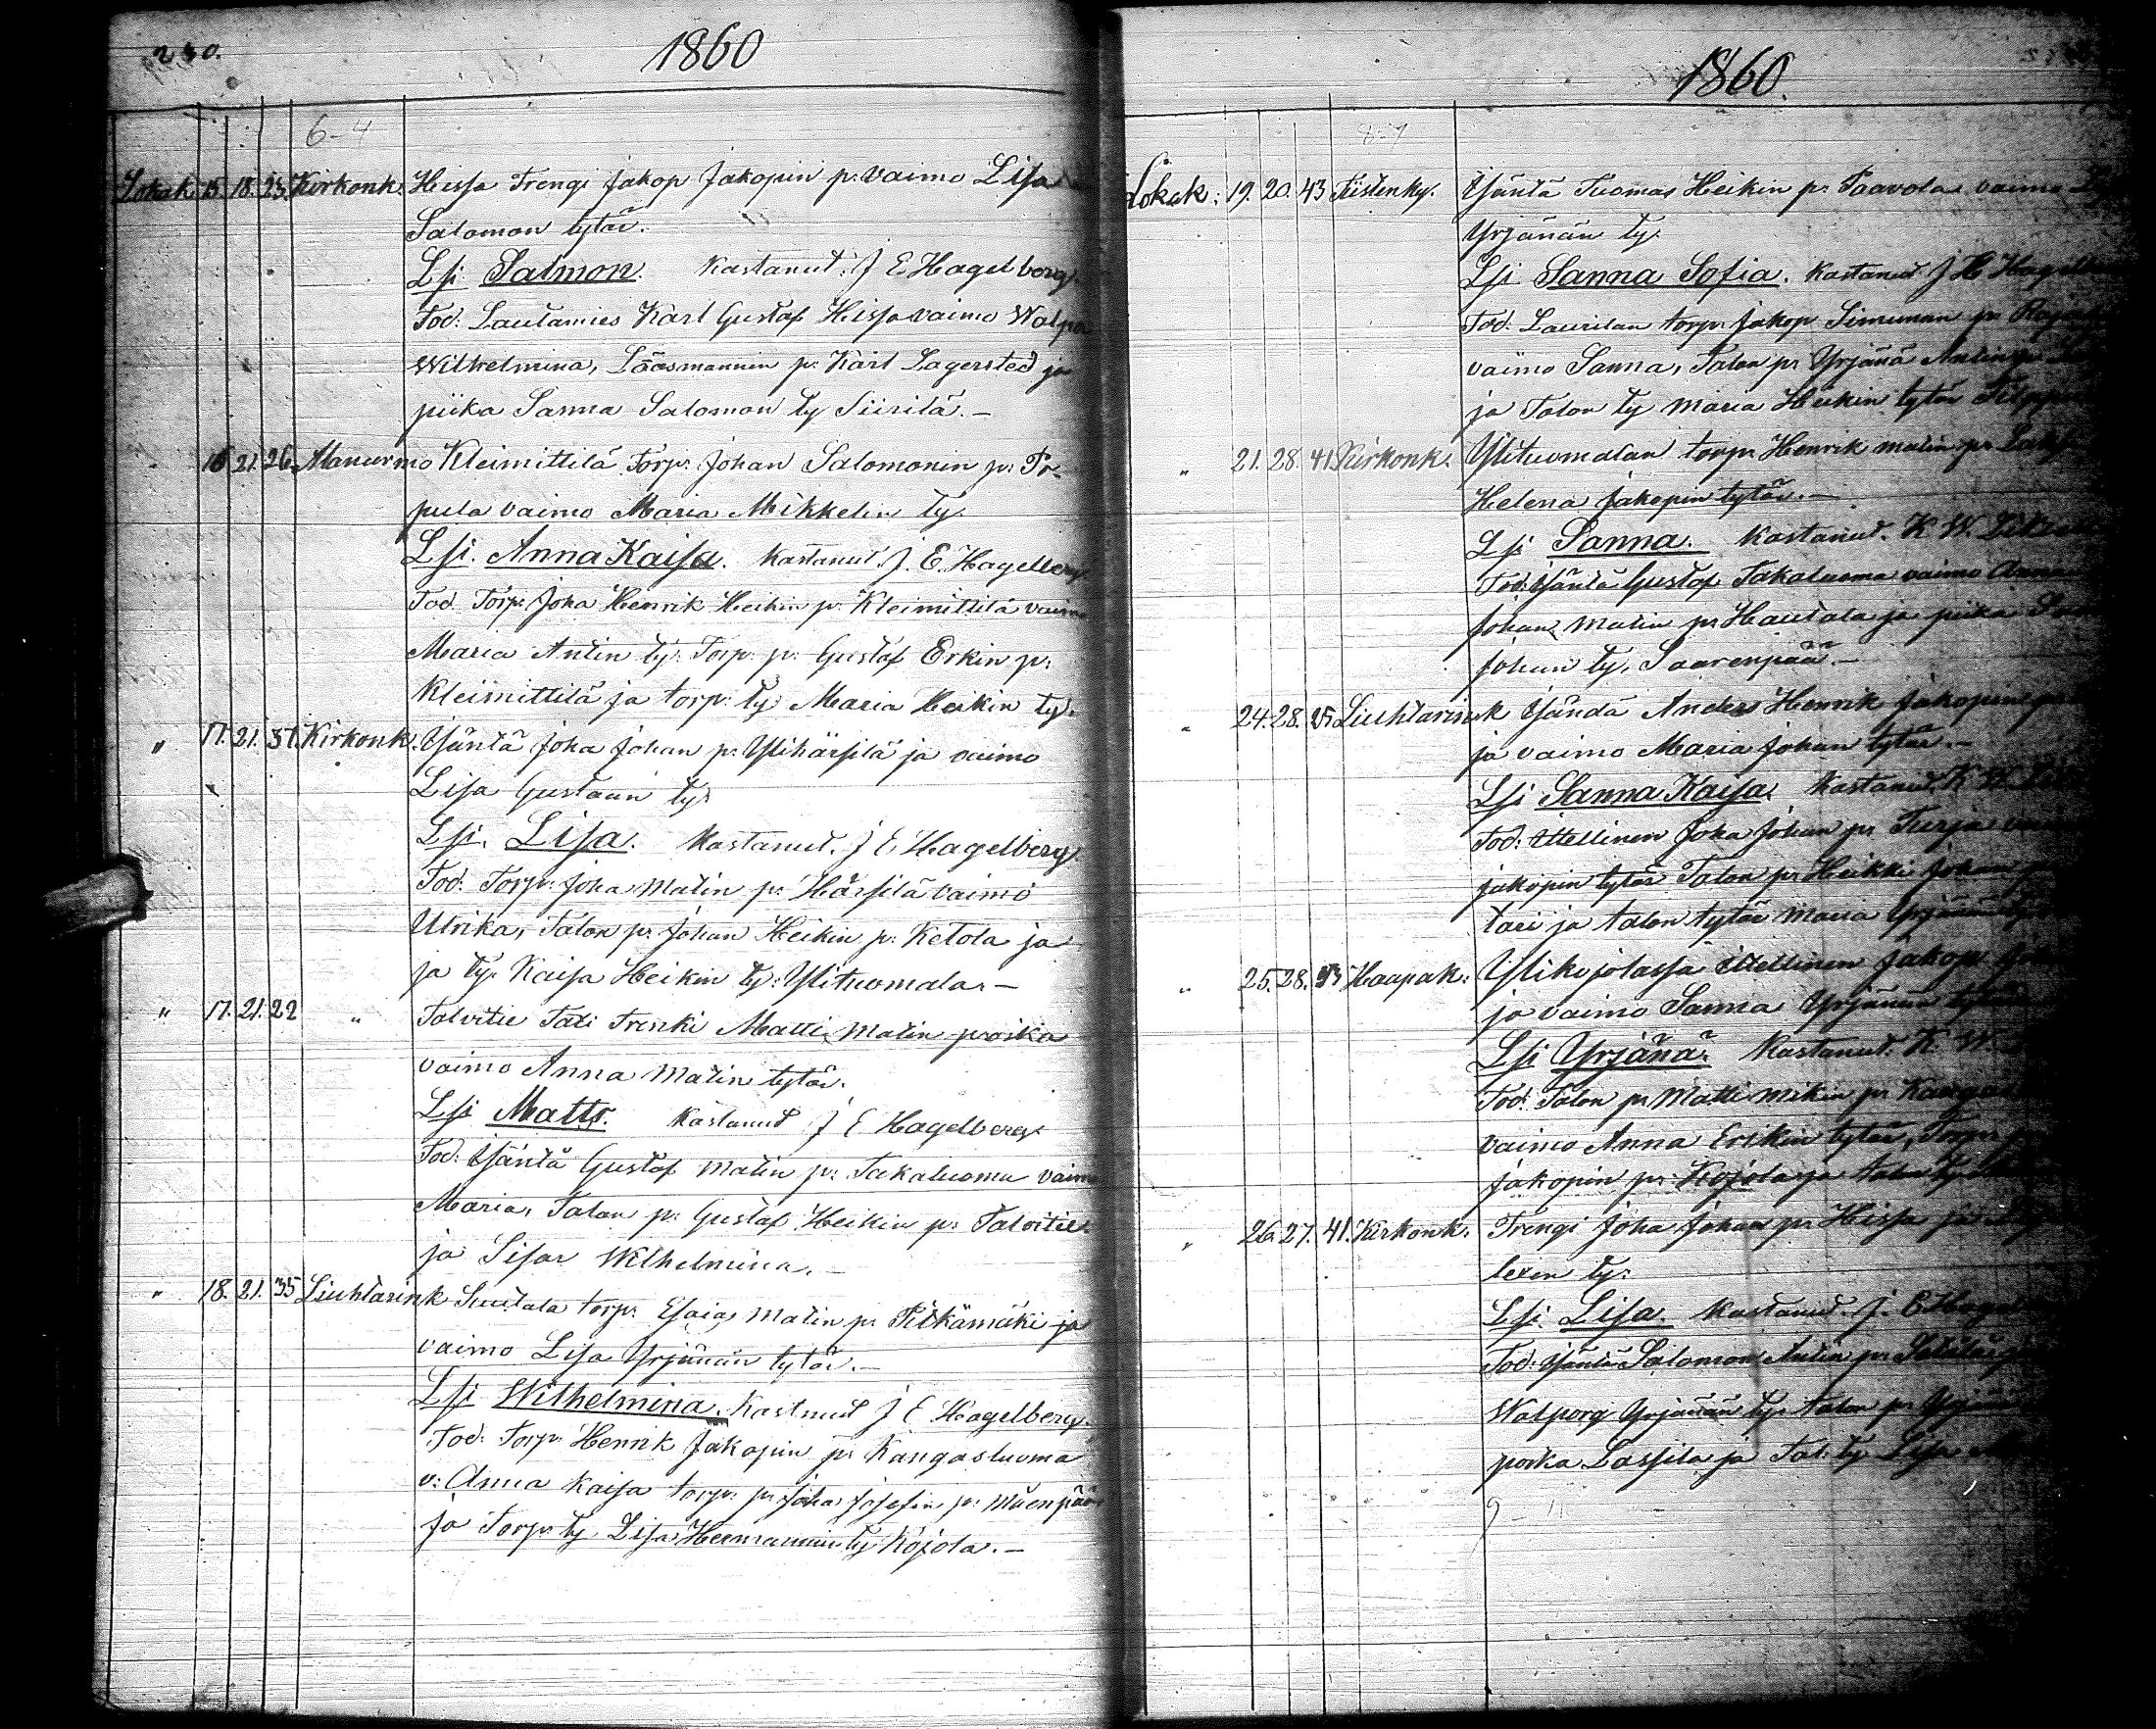 230.
1860
6-4
Lokak 15. 18. 23. Kirkonk. Hissa Trengi Jakop Jakopin p: vaimo Lisa
Salomon tytär.
Lsi Salmon. Kastanut. J E Hagelberg.
Tod: Lautamies Karl Gustaf Hissa vaimo
Wilhelmina, p: Karl Lagersted ja
piika Sanna Salomon ty Siirilä. –
" 16 21. 26. Kleimittilä Torp: Johan Salomonin p:
pula vaimo Maria Mikkelin ty.
Lsi. Anna Kaisa. Kastanut. J. E. Hagelberg
Tod. Torp: Joha Henrik Heikin p: Kleimittilä vaimo
Maria Antin ty: Torp: p: Gustaf Erkin p:
Kleimittilä ja torp: ty Maria Heikin ty.
" 17. 21. Kirkonk. Isäntä Joha Johan p: Ylihärsilä ja vaimo
Lisa Gustaan ty:
Lsi. Lisa. Kastanut. J E Hagelberg
Tod: Torp: Joha Matin p: Härsilä vaimo
Ulrika, Talon p: Johan Heikin p: Ketola ja
ja ty: Kaisa Heikin ty: Ylituomala. –
" 17. 21. 22 " Talvitie Tali Trenki Matti Matin poika
vaimo Anna Matin tytär.
Lsi Matts. Kastanut J E Hagelberg
Tod: Isäntä Gustaf Matin p: Takaluoma vaimo
Maria, Talon p: Gustaf Heikin p: Talvitie
ja Sisar Wilhelmina. –
" 18. 21. 35 Liuhtarink Luutala torp: Esaias Matin p: Pitkämäki ja
vaimo Lisa Yrjänän tytär. –
Lsi Wilhelmina. Kastnut J E Hagelberg.
Tod: Torp: Henrik Jakopin p: Kangasluoma
v: Anna Kaisa torp: p: Joha Josefin p: Mäenpää
ja Torp: ty Lisa Hermannin ty Kojola. –
1860.
8-7
Lokak: 19. 20. 43 Tiistenky. Isäntä Tuomas Heikin p: Paavola vaimo
Yrjänän ty.
Lsi Sanna Sofia. Kastanut J E
Tod: Laurilan torp: Jakop Simunan p:
vaimo Sanna, Talon p: Yrjänä Antin p:
ja Talon ty Maria Heikin tytär
" 21. 28. 41 Kirkonk. Ylituomalan torp: Henrik Matin p:
Helena Jakopin tytär. –
Lsi Sanna. Kastanut. K W.
Tod: Isäntä Gustaf Takaluoma vaimo Anna
Johan Matin p: Hautala ja piika
Johan ty, Saarenpää. –
" 24. 28. Liuhtarink Isändä Anders Henrik Jakopin p:
ja vaimo Maria Johan tytär. –
Lsi Sanna Kaisa. Kastanut. K W.
Tod: Itellinen Joha Johan p: Turja
Jakopin tytär Talon p: Heikki Johan
tari ja talon tytär Maria Yrjänän
" 25. 28. Haapak: Ylikojolassa Itellinen Jakop
ja vaimo Sanna Yrjänän
Lsi Yrjänä. Kastanut. K W.
Tod: Talon p: Matti Mikin p:
vaimo Anna Erikin tytär, Torp:
Jakopin p: Kojola ja talon ty
" 26. 27. 41. Kirkonk. Trengi Joha Johan p: Hissa ja
ty:
Lsi. Lisa. Kastanut. J. E
Tod: Isäntä Salomon Antin p:
Walporg Yrjänän ty: talon p: Yrjänä
poika Lassila ja Tal: ty Lisa
9 – 11